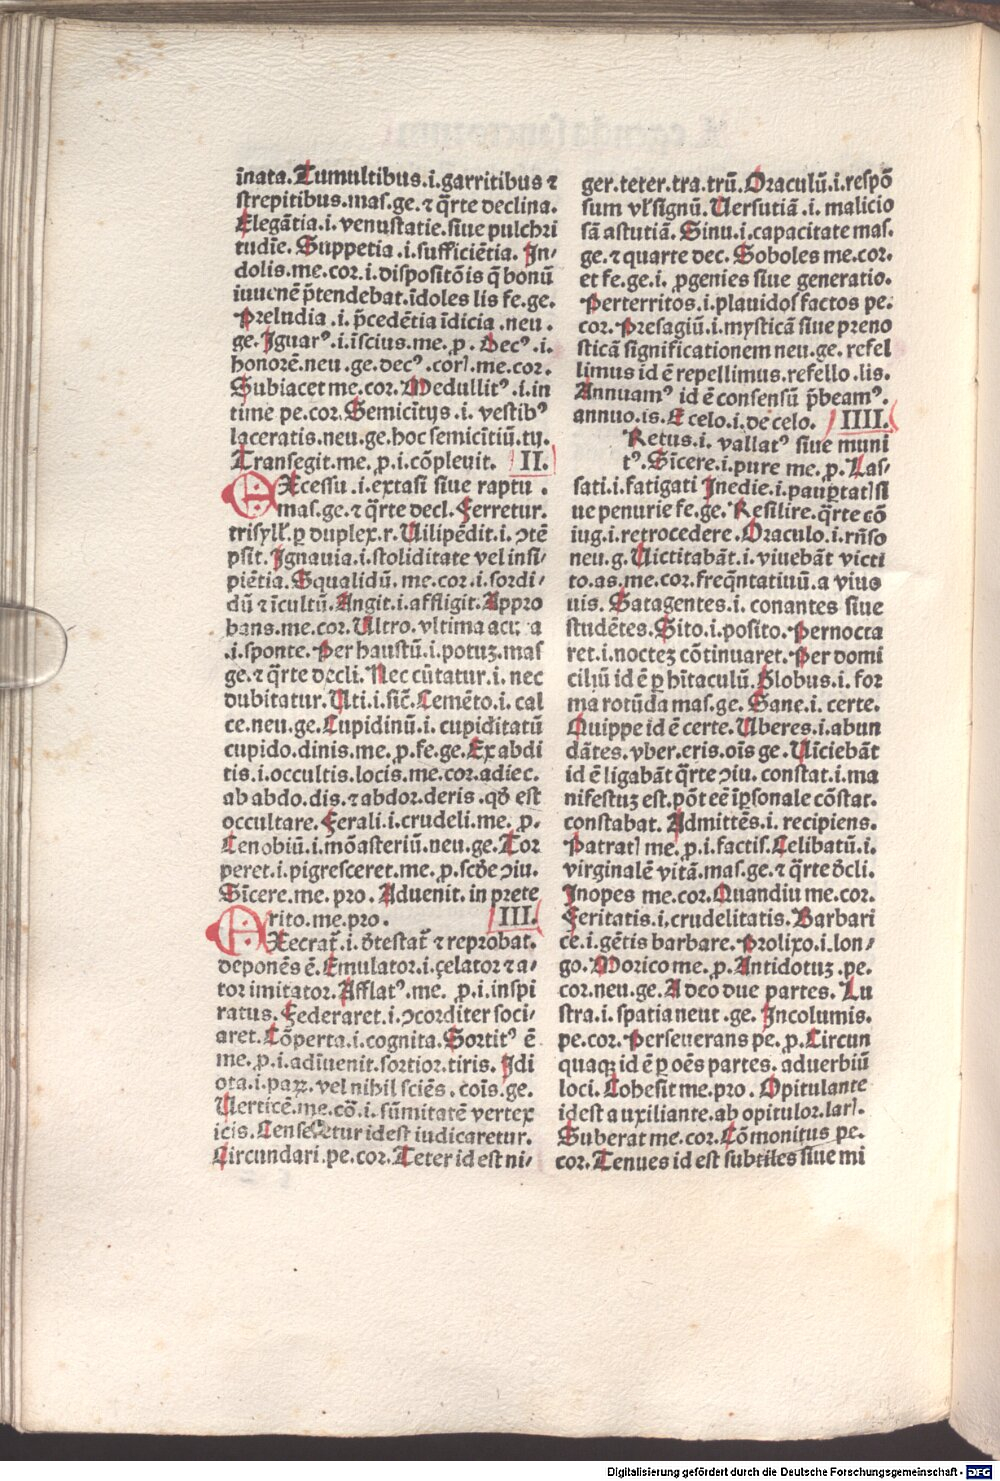 īnata.Tumultibus.i.garritibus ⁊
strepitibus.mas.ge.⁊ q̄rte declina.
Elegātia.i.venustatie.siue pulchri
tudīe.Suppetia.i.sufficiētia. In-
dolis.me.cor.i.dispositōis q̄ bonū
iuuenē p̄tendebat.īdoles lis fe.ge.
Preludia.i.p̄cedētia īdicia.neu.
ge.Ignarꝰ.i.īscius.me.p. Decꝰ.i.
honorē.neu.ge.decꝰ.corꝭ.me.cor.
Subiacet me.cor.Medullitꝰ.i.in
time pe.cor.Semicītijs.i. vestibꝰ
laceratis.neu.ge.hoc semicītiū.tij.
Transegit.me.p.i.cōpleuit. II.
EXcessu.i.extasi siue raptu.
mas.ge.⁊ q̄rte decl.Ferretur.
trisylł.ꝑ duplex.r.Uilipēdit.i.ↄtē
psit.Ignauia.i.stoliditate vel insi-
piētia.Squalidū.me.cor.i.sordi-
dū ⁊ īcultū.Angit.i.affligit.Appro
bans.me.cor.Ultro.vltima acu: a
.i.sponte.Per haustū.i.potuꝫ.mas
ge.⁊ q̄rte decli.Nec cūtatur.i.nec
dubitatur.Uti.i.sic̄.Cemēto.i.cal
ce.neu.ge.Cupidinū.i.cupiditatū
cupido.dinis.me.p.fe.ge.Ex abdi
tis.i.occultis.locis.me.cor.adiec.
ab abdo.dis.⁊ abdor.deris.qđ est
occultare.Ferali.i.crudeli.me.p.
Cenobiū.i.mōasteriū.neu.ge.Tor
peret.i.pigresceret.me.p.scđe ↄiu.
Sīcere.me.pro.Aduenit.in prete
rito.me.pro. III.
EXecrat̄.i.đtestat̄ ⁊ reprobat.
deponēs ē.Emulator.i.çelator ⁊ a-
tor imitator.Afflatꝰ.me. p.i.inspi
ratus.Federaret.i.ↄcorditer soci-
aret.Cōperta.i.cognita.Sortitꝰ ē
me.p.i.adīuenit.sortior.tiris. Idi
ota.i.paꝝ.vel nihil sciēs.cois.ge.
Uerticē.me.cō.i.sūmitatē vertex
icis.Censetur id est iudicaretur.
Circundari.pe.cor.Teter id est ni-
ger.teter.tra.trū.Oraculū.i.respō
sum vł signū.Uersutiā.i. malicio
sā astutiā.Sinu.i.capacitate mas.
ge.⁊ quarte dec.Soboles me.cor.
et fe.ge.i. ꝓgenies siue generatio.
Perterritos.i.plauidos factos pe.
cor.Presagiū.i.mysticā siue preno
sticā significationem neu.ge.refel
limus id ē repellimus.refello.lis.
Annuamꝰ id ē consensū p̄beamꝰ.
annuo.is.E celo.i.de celo. IIII.
Retus.i. vallatꝰ siue muni
tꝰ.Sīcere.i.pure me.p.Las-
sati.i.fatigati Inedie.i.pauꝑtatꝭ si
ue penurie fe.ge.Resilire.q̄rte cō
iug.i.retrocedere.Oraculo.i.rn̄so
neu.g.Uictitabāt.i.viuebāt victi
to.as.me.cor.freq̄ntatiuū.a viuo
uis.Satagentes.i.conantes siue
studētes.Sito.i.posito.Pernocta
ret.i.nocteꝫ cōtinuaret.Per domi
ciliū id ē ꝑ hītaculū.Globus.i.for
ma rotūda mas.ge.Sane.i. certe.
Quippe id ē certe.Uberes.i.abun
dātes.vber.eris.ois ge.Uīciebāt
id ē ligabāt q̄rte ↄiu.constat.i.ma
nifestuꝫ est.pōt eē īꝑsonale cōstat.
constabat.Admittēs.i.recipiens.
Patratꝭ me.p.i.factis.Celibatū.i.
virginalē vitā.mas.ge.⁊ q̄rte đcli.
Inopes me.cor.Quandiu me.cor.
Feritatis.i.crudelitatis.Barbari
ce.i.gētis barbare.Prolixo.i.lon-
go.Morico me.p.Antidotuꝫ.pe.
cor.neu.ge.Adeo due partes.Lu
stra.i.spatia neut.ge.Incolumis.
pe.cor.Perseuerans pe.p.Circun
quaqꝫ id ē ꝑ oēs partes.aduerbiū
loci.Cohesit me.pro.Opitulante
id est auxiliante.ab opitulor.larꝭ.
Suberat me.cor.Cōmonitus pe.
cor.Tenues id est subtiles siue mi
Digitalisierung gefördert durch die Deutsche Forschungsgemeinschaft - DFG